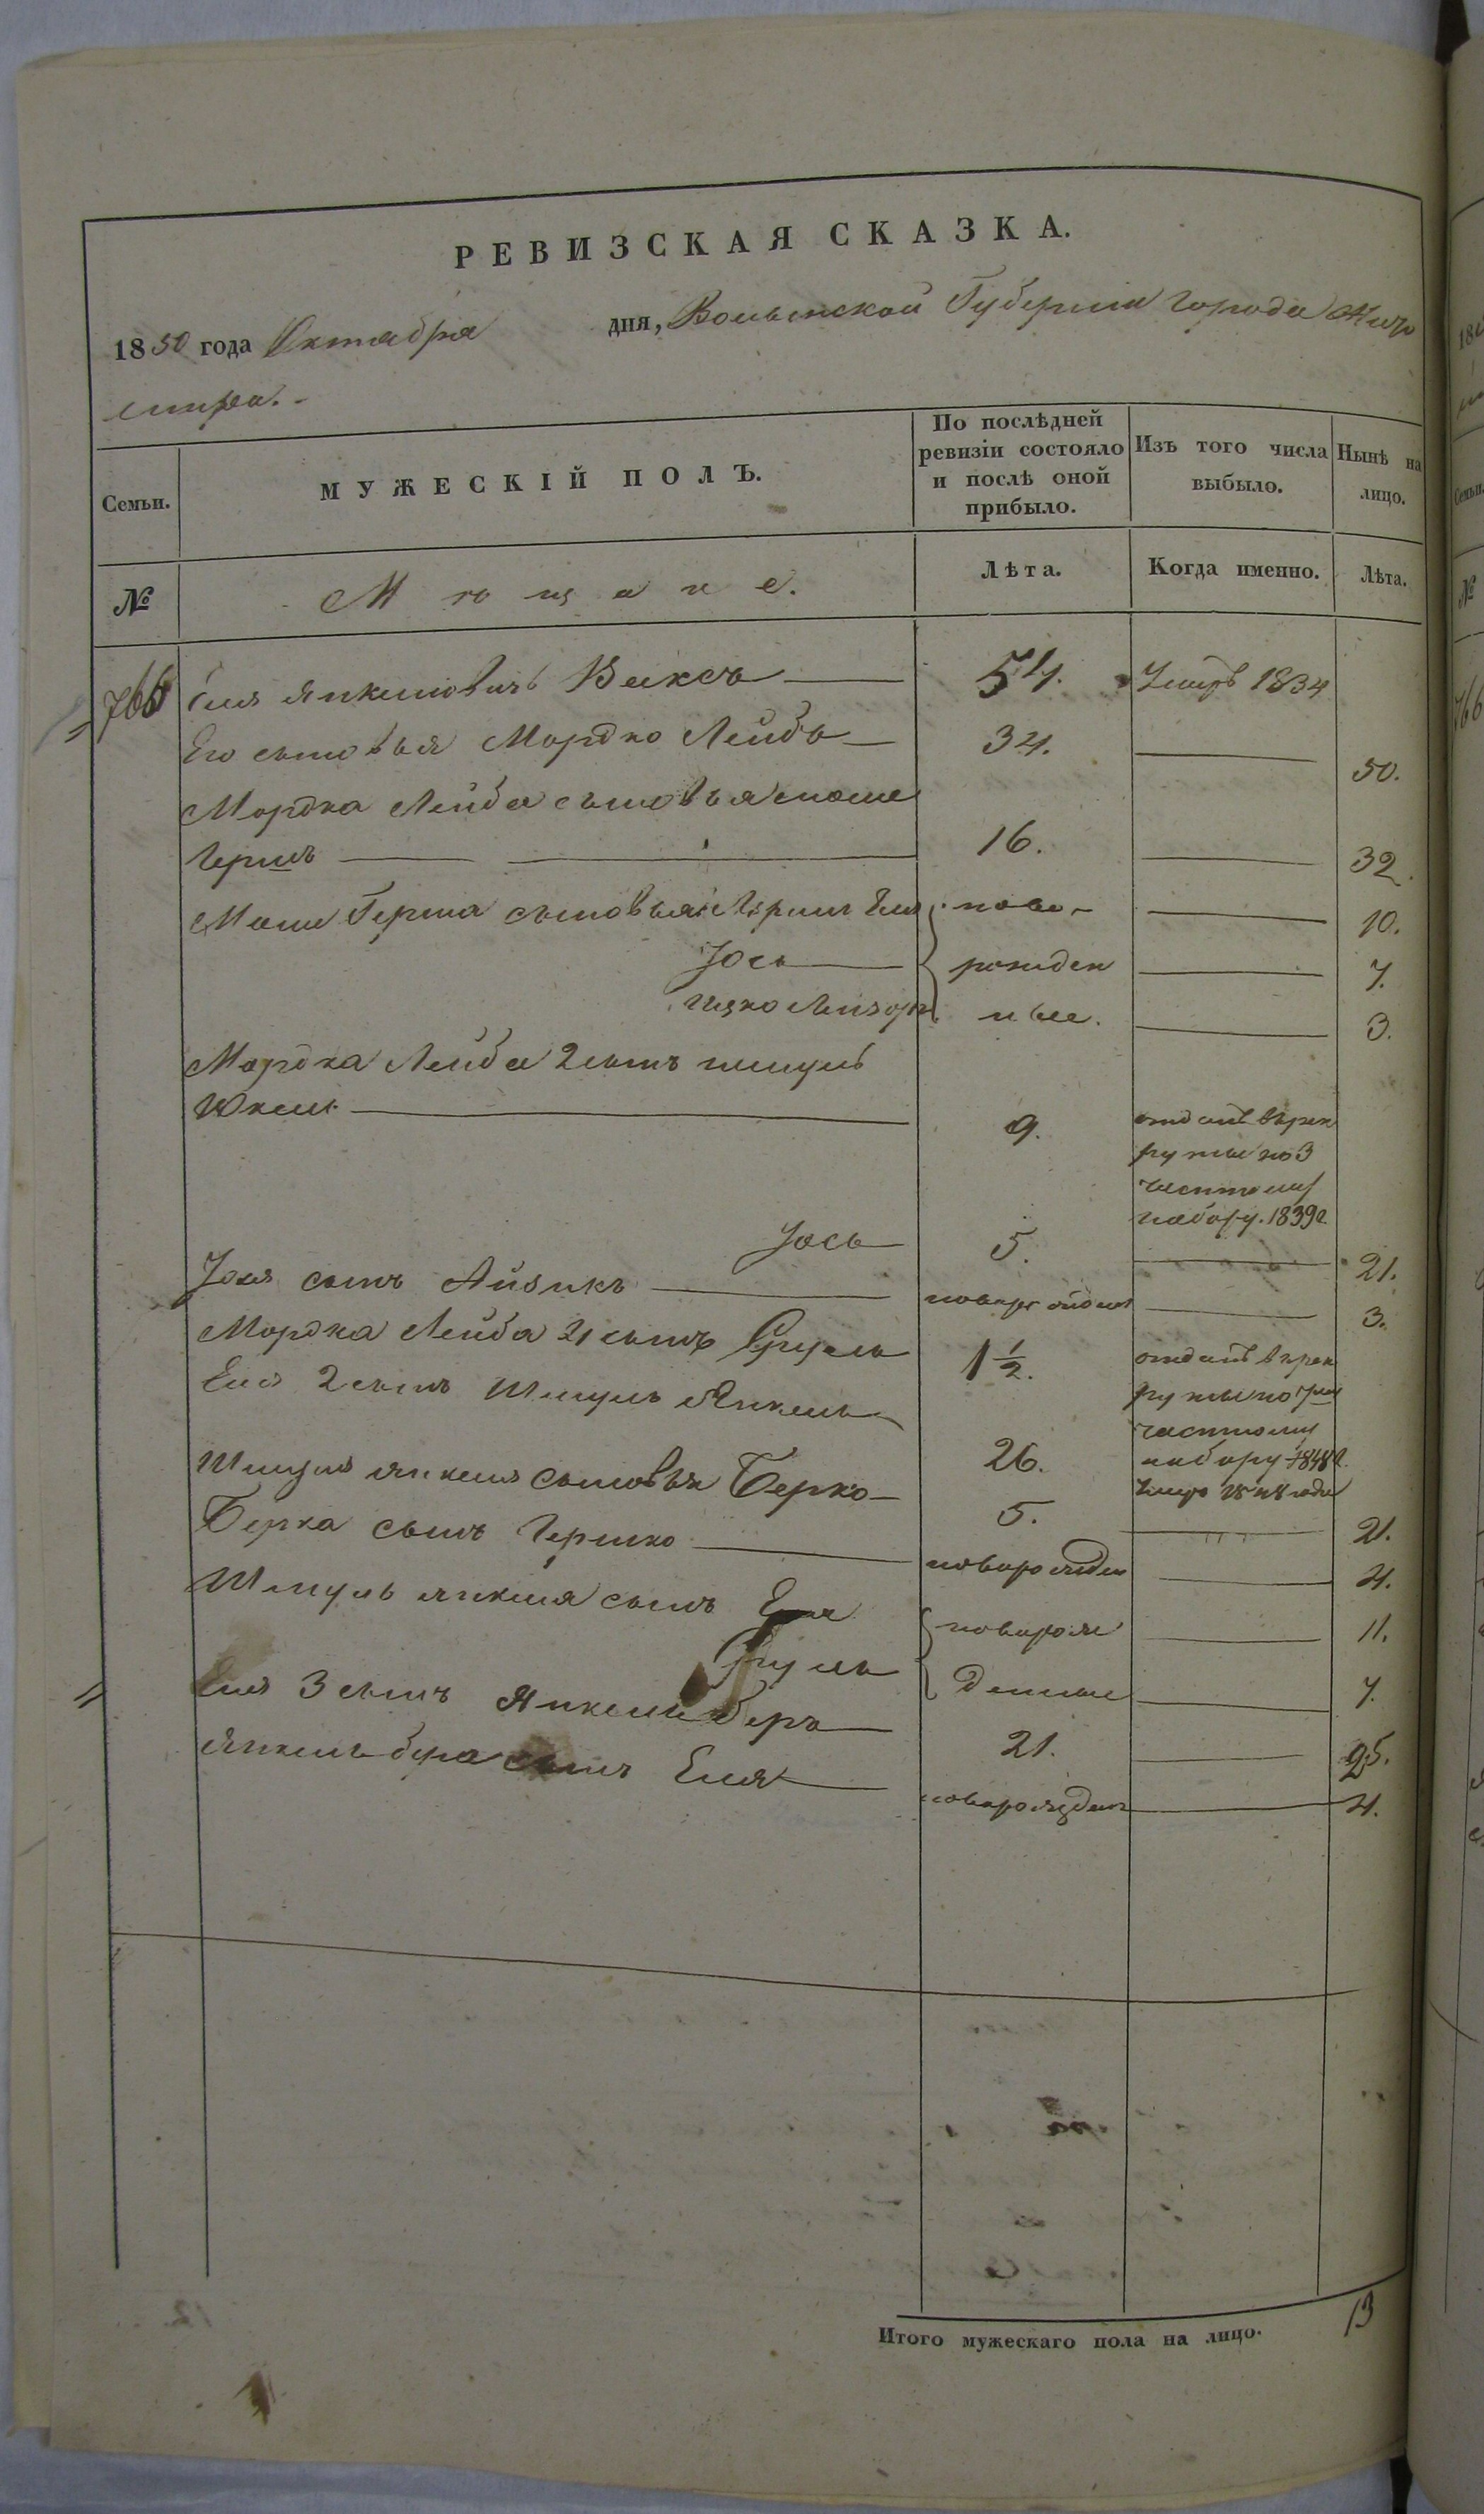 РЕВИЗСКАЯ СКАЗКА.
1850 года Октября дня, Волынской Губернии города Жито
мира.-
Семьи. МУЖЕСКІЙ ПОЛЪ. По послѣдней ревизіи состояло и послѣ оной прибыло. Изъ того числа выбыло. Нынѣ на лицо.
№ Мѣщане. Лѣта. Когда именно. Лѣта.
766 Еля Янкелювичъ Ваксъ 54. Умеръ 1834
Его сыновья Мордко Лейба 34. 50.
Мордка Лейба сыновья Моше
Гершъ 16. 32.
Моше Герша сыновья: Ель ново- 10.
Юсь рожден 7.
Ицко ные. 3.
Мордка Лейба 2 сынъ Шмуль
Юкель 9. отданъ в рек
руты по 3
частному
набору. 1839г
Юсь 5. 21.
Юся сынъ Айзикъ новорожден 3.
Мордка Лейба 4 сынъ Сруль 1½. отданъ в рек
Еля 2 сынъ Шмуль Янкель руты по
частному
26. набору 1848г.
Шмуля Янкеля сыновья Берко 5. умеръ 1848 года
21.
Берка сынъ Гершко новорожден 4.
Шмуль Янкеля сынъ Еля новорож 11.
Сруль денные 7.
Еля 3 сынъ Янкель Беръ 21. 25.
Янкель Бера сынъ Еля новорожден 4.
Итого мужескаго пола на лицо. 13